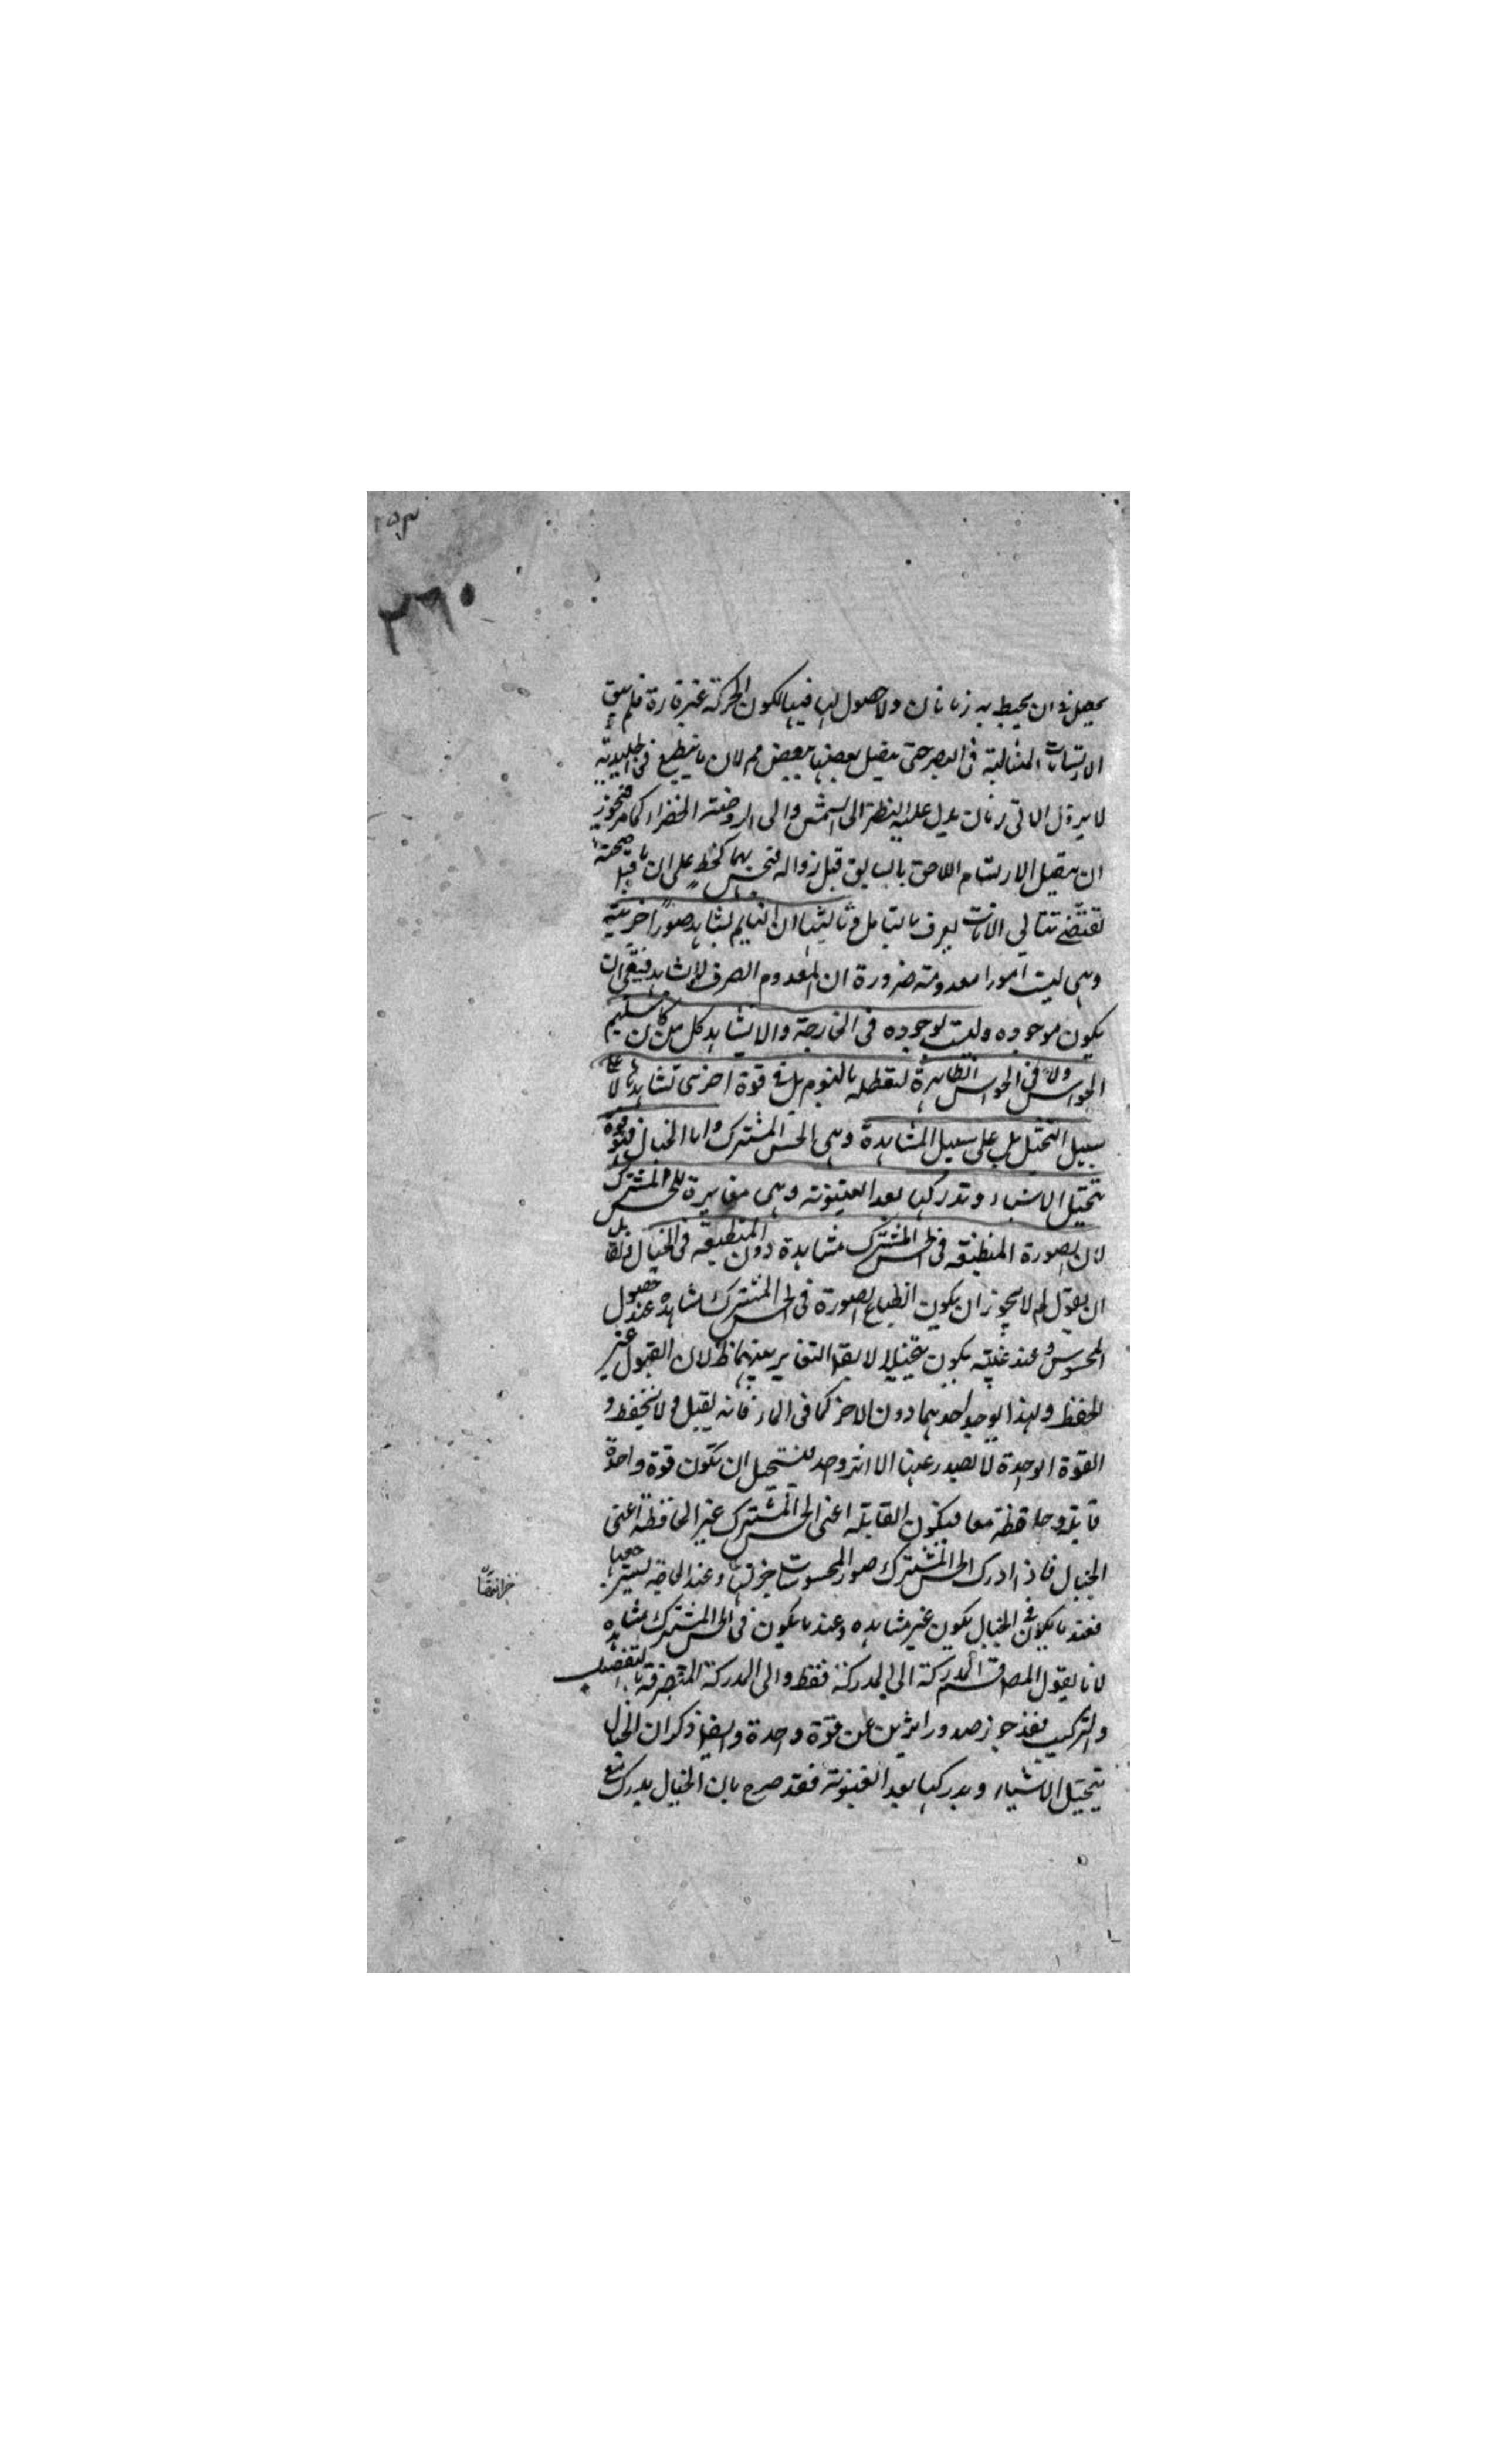 ١٥٣
٢٦٠
يحصل في ان يحيط به زمانان ولا حصول لها فيها لكون الحركة غير قارة فلم يبق
الارتسامات المتتالية في البصر حتى يتصل بعضها ببعض مم لان ما ينطبع في الجليدية
لا يزول الا في زمان يدل عليه النظر الى الشمس والى الروضة الخضراء كما مر فيجوز
ان يتصل الارتسام اللاحق بالسابق قبل زواله فيحس بهما كخط على ان ما قيل صحته
تقتضي تتالي الآنات يعرف بالتامل وثالثها ان النايم يشاهد صورا جزئية
وهي ليست امورا معدومة ضرورة ان المعدوم الصرف لا يشاهد فبقي ان
يكون موجوده وليست بوجوده في الخارجة والا لشاهد كل من كان سليم
الحواس ولا في الحواس الظاهرة لتعطله بالنوم بل في قوة اخرى تشاهدها لا على
سبيل التخيل بل على سبيل المشاهدة وهي الحس المشترك واما الخيال فهو قوة
تتخيل الاشياء وتدركها بعد الغيبوبة وهي مغايرة للحس المشترك
لان الصورة المنطبقه في الحس المشترك مشاهدة دون المنطبقه في الخيال ولقايل
ان يقول لم لا يجوز ان يكون انطباع الصورة في الحس المشترك مشاهده عند حصول
المحسوس وعند غيبته يكون تخيلا لا يقال التغاير بينهما ظ لان القبول غير
الحفظ ولهذا يوجد احدهما دون الاخر كما في الماء فانه يقبل ولا يحفظ و
القوة الواحدة لا يصدر عنها الا اثر واحد فيستحيل ان تكون قوة واحدة
قابلة وحافظة معا فيكون القابلة اعني الحس المشترك غير الحافظة اعني
الخيال فاذا ادرك الحس المشترك صور المحسوسات خزنتها وعند الحاجة يسترجعها
خزانتها
فعند ما يكون في الخيال يكون غير مشاهده وعند ما يكون في الحس المشترك مشاهده
لانا نقول المص قسم المدركة الى المدركة فقط والى المدركة المتصرفة بالتفصيل
والتركيب فقد جوز صدور اثرين عن قوة واحدة وايضا ذكر ان الخيال
يتخيل الاشياء ويدركها بعد الغيبوبة فقد صرح بان الخيال يدرك مع